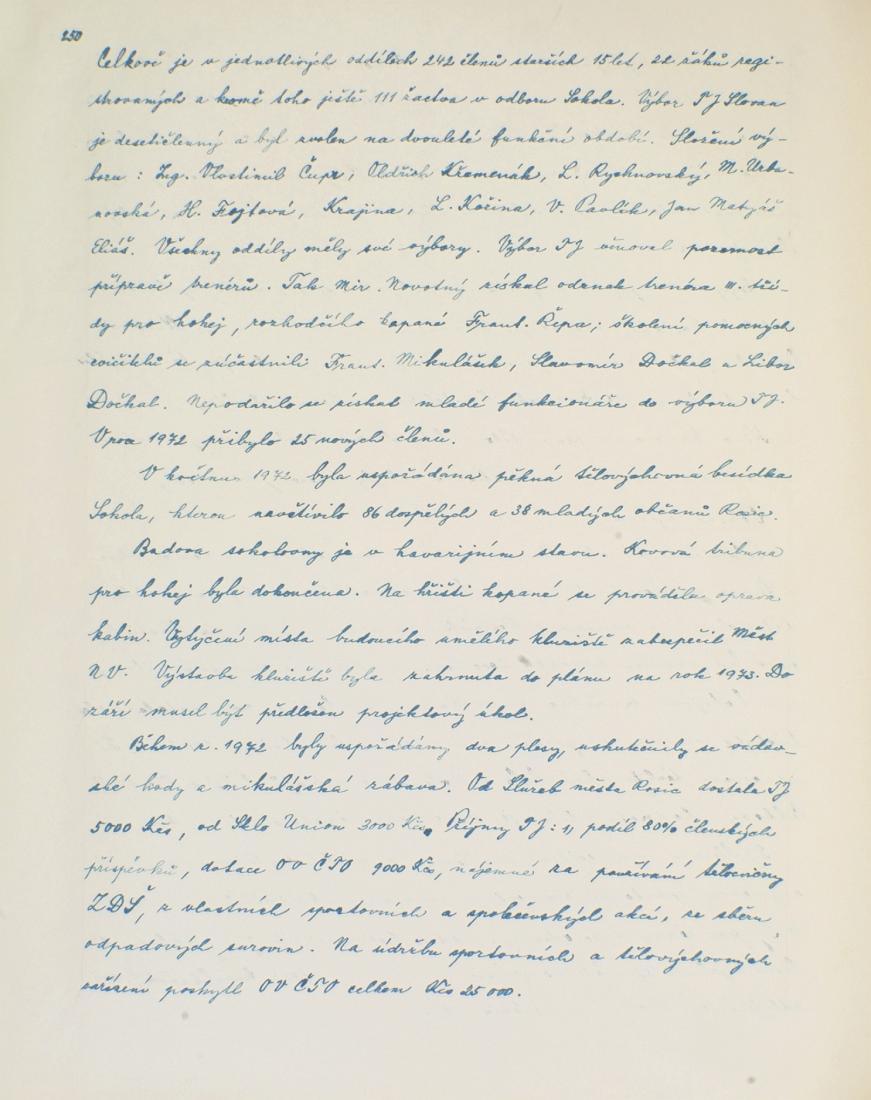 250
Celkově je v jednotlivých oddílech 242 členů starších 15 let, 22 žáků regi-
strovaných a kromě toho ještě 111 žactva v odboru Sokola. Výbor TJ Slovan
je desetičlenný a byl zvolen na dvouleté funkční období. Složení vý-
boru : Ing. Vlastimil Čupr, Oldřich Křemenák, L. Rychnovský, M. Urba-
novská, H. Fojtová, Krajina, L. Kočina, V. Pavlík, Jan Matyáš
Eliáš. Všechny oddíly měly své výbory. Výbor TJ věnoval pozornost
přípravě trenérů. Tak Mir. Novotný získal odznak trenéra III. tří-
dy pro hokej, rozhodčího kopané Frant. Řepa; školení pomocných
cvičitelů se zúčastnili Frant. Mikulášek, Slavomír Dočkal a Libor
Dočkal. Nepodařilo se získat mladé funkcionáře do výboru TJ.
V roce 1972 přibylo 25 nových členů.
V květnu 1972 byla uspořádána pěkná tělovýchovná besídka
Sokola, kterou navštívilo 86 dospělých a 38 mladých občanů Rosic.
Budova sokolovny je v havarijním stavu. Kovová tribuna
pro hokej byla dokončena. Na hřišti kopané se prováděla oprava
kabin. Vytyčení místa budoucího umělého kluziště zabezpečil Měst
NV. Výstavba kluziště byla zahrnuta do plánu na rok 1973. Do
září musel být předložen projektový úkol.
Během r. 1972 byly uspořádány dva plesy, uskutečnily se václav-
ské hody a mikulášská zábava. Od Služeb města Rosic dostala TJ
5000 Kčs, od Sklo Union 3000 Kčs. Příjmy TJ : 1) podíl 80% členských
příspěvků, dotace OV ČTO 9000 Kčs, nájemné za používání tělocvičny
ZDŠ, z vlastních sportovních a společenských akcí, ze sběru
odpadových surovin. Na údržbu sportovních a tělovýchovných
zařízení poskytl OV ČTO celkem Kčs 25 000.